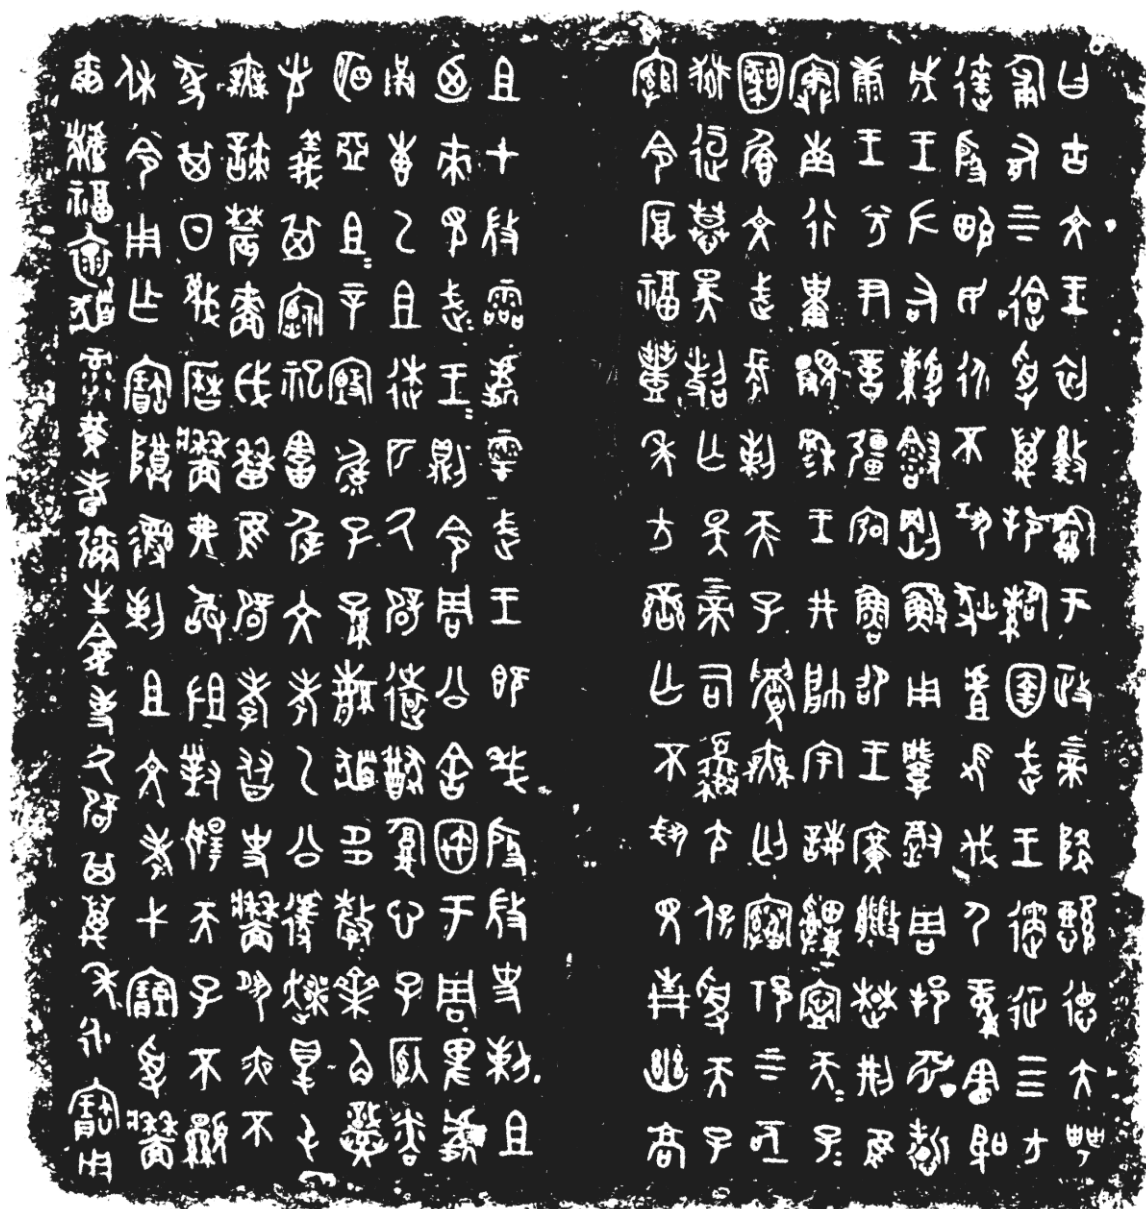 曰古文王初盭龢于政上帝降懿德大甹
匍有上下迨受萬邦圉武王遹征四方
達殷畯民永不巩狄虘𢼸伐尸童憲聖
成王左右剛鯀用肇徹周邦淵哲
康王兮尹疆宖魯卲王廣楚荊隹
南行祗穆王井帥宇誨天子天子
文武長剌天子無匄祁上下亟
慕昊亡斁上帝司尢保受天子
令厚福豐年方蠻亡不見青幽高
且才𢼸霝處𩁹武王既𢦏殷𢼸史剌且
廼來見武王武王則令周公舍㝢于周卑處
甬叀乙且匹氒辟遠猷腹心子
明亞且且辛毓子孫繁多孷角熾
光義其禋祀屖文考乙公遽爽得屯
無諫農穡戉曆隹辟孝友史墻夙夜不
其日蔑曆墻弗敢沮對揚天子不顯
休令用乍寶尊彝剌且文考弋受墻
爾福懷彔黄耇彌生龕事氒辟其萬年永寶用